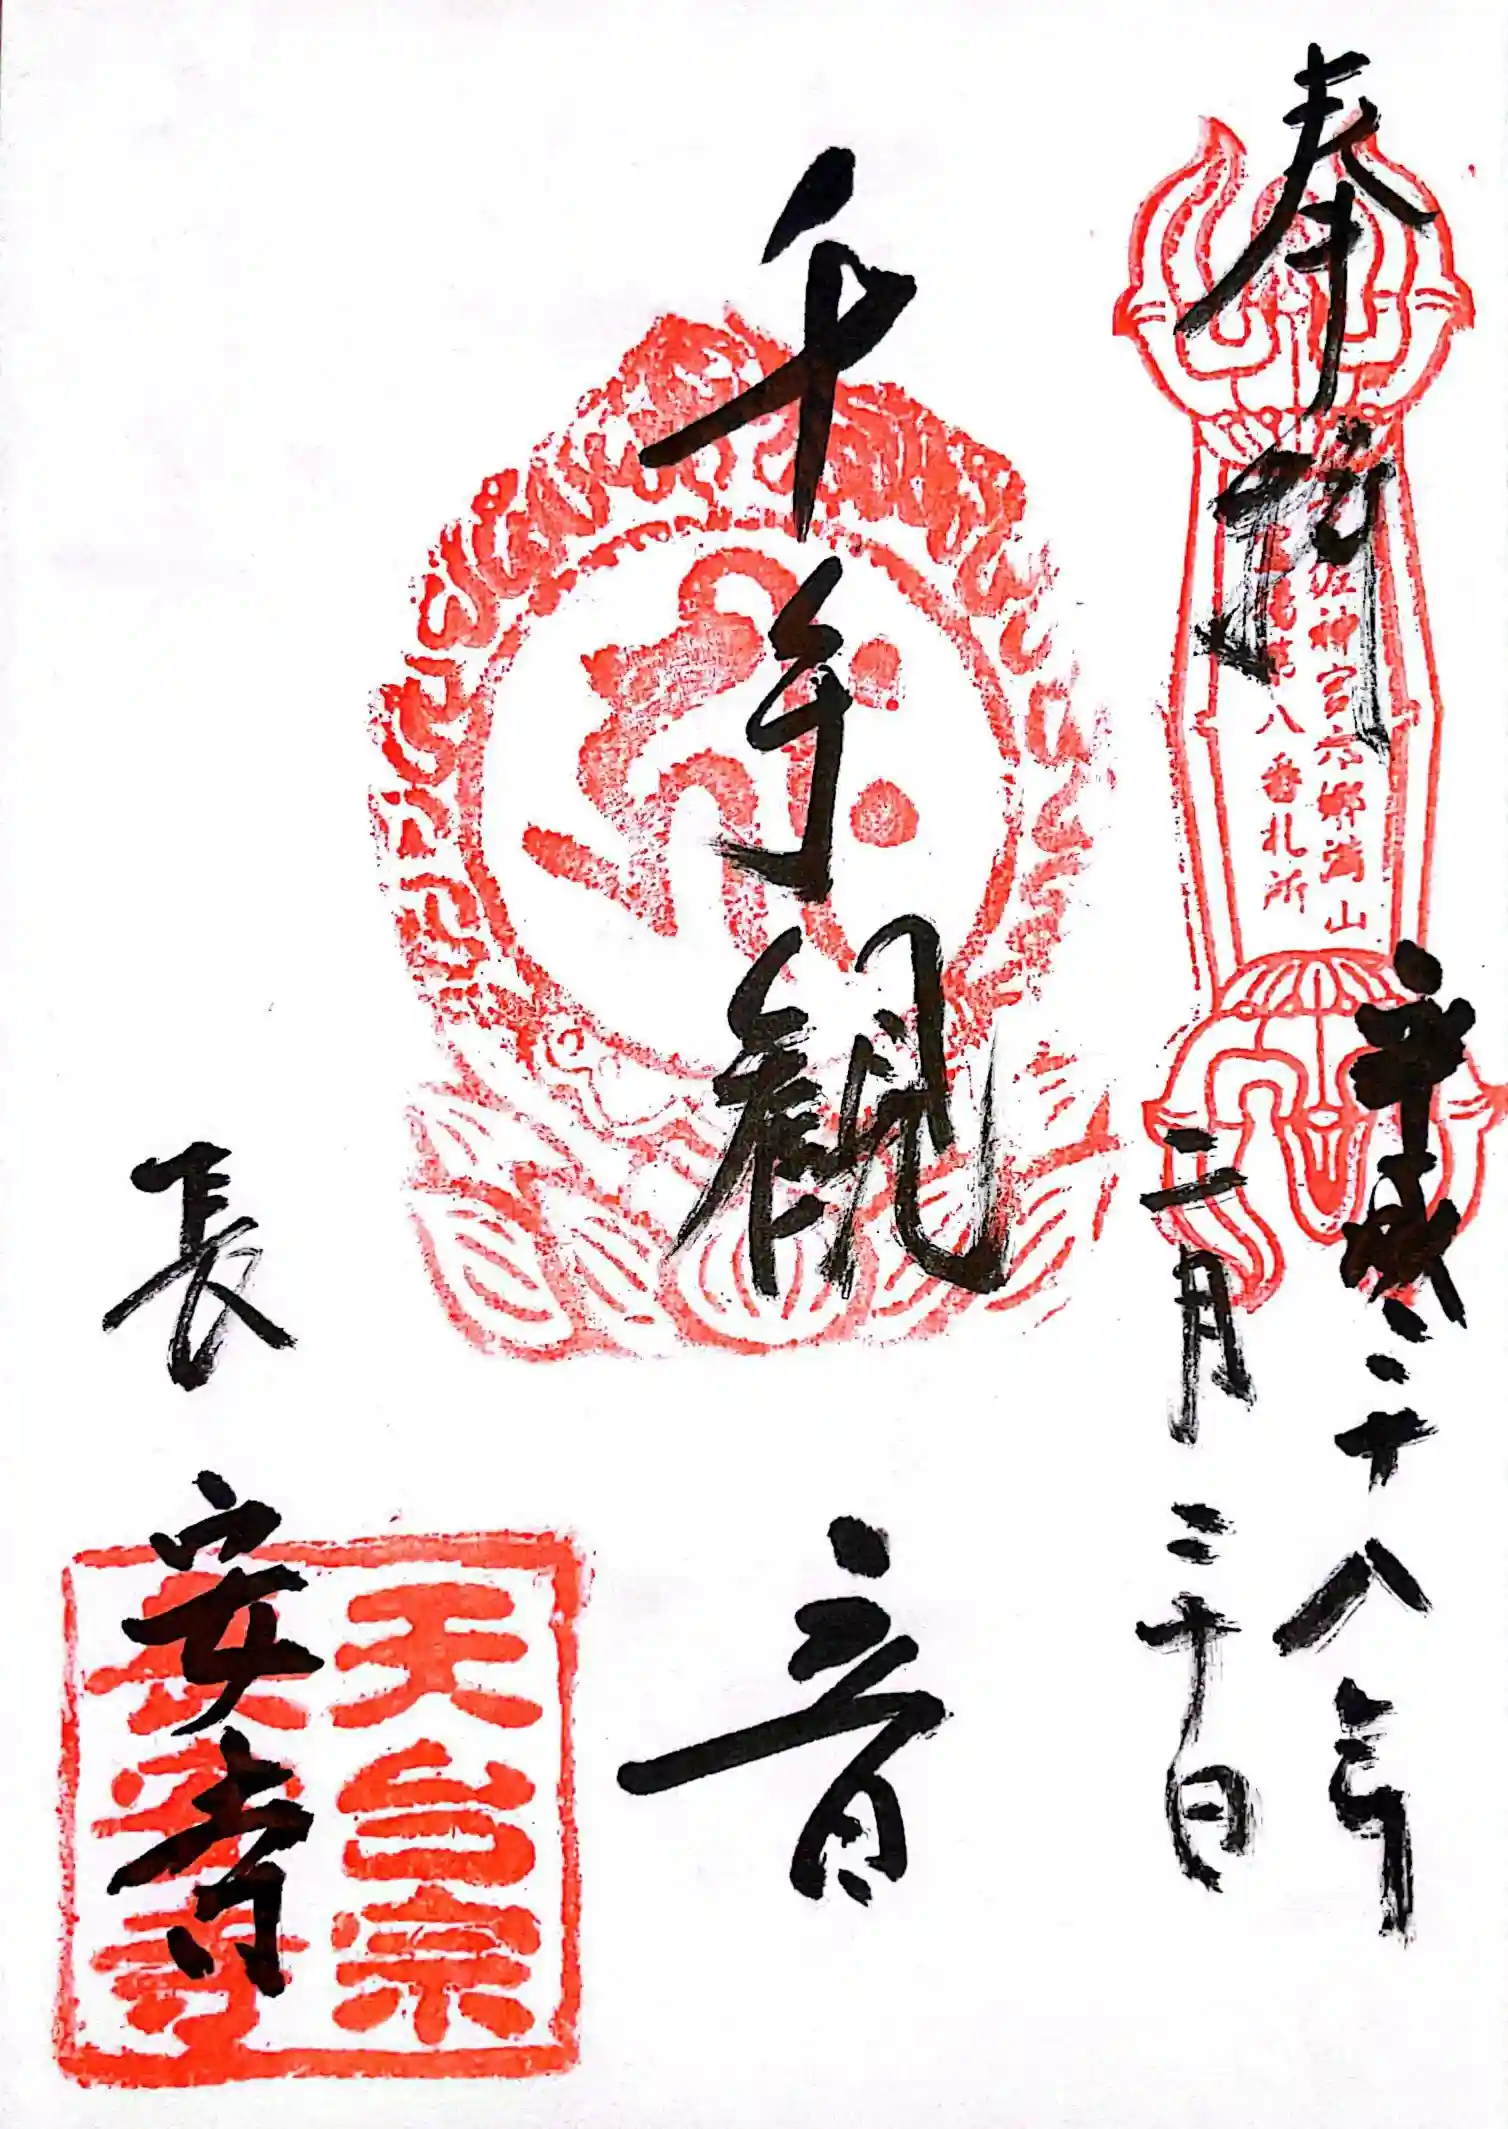 奉拝
佐神宮六郷満山
霊場第八番札所
平成二十八年
三月三十日
千手観音
長安寺
天台宗
長安寺